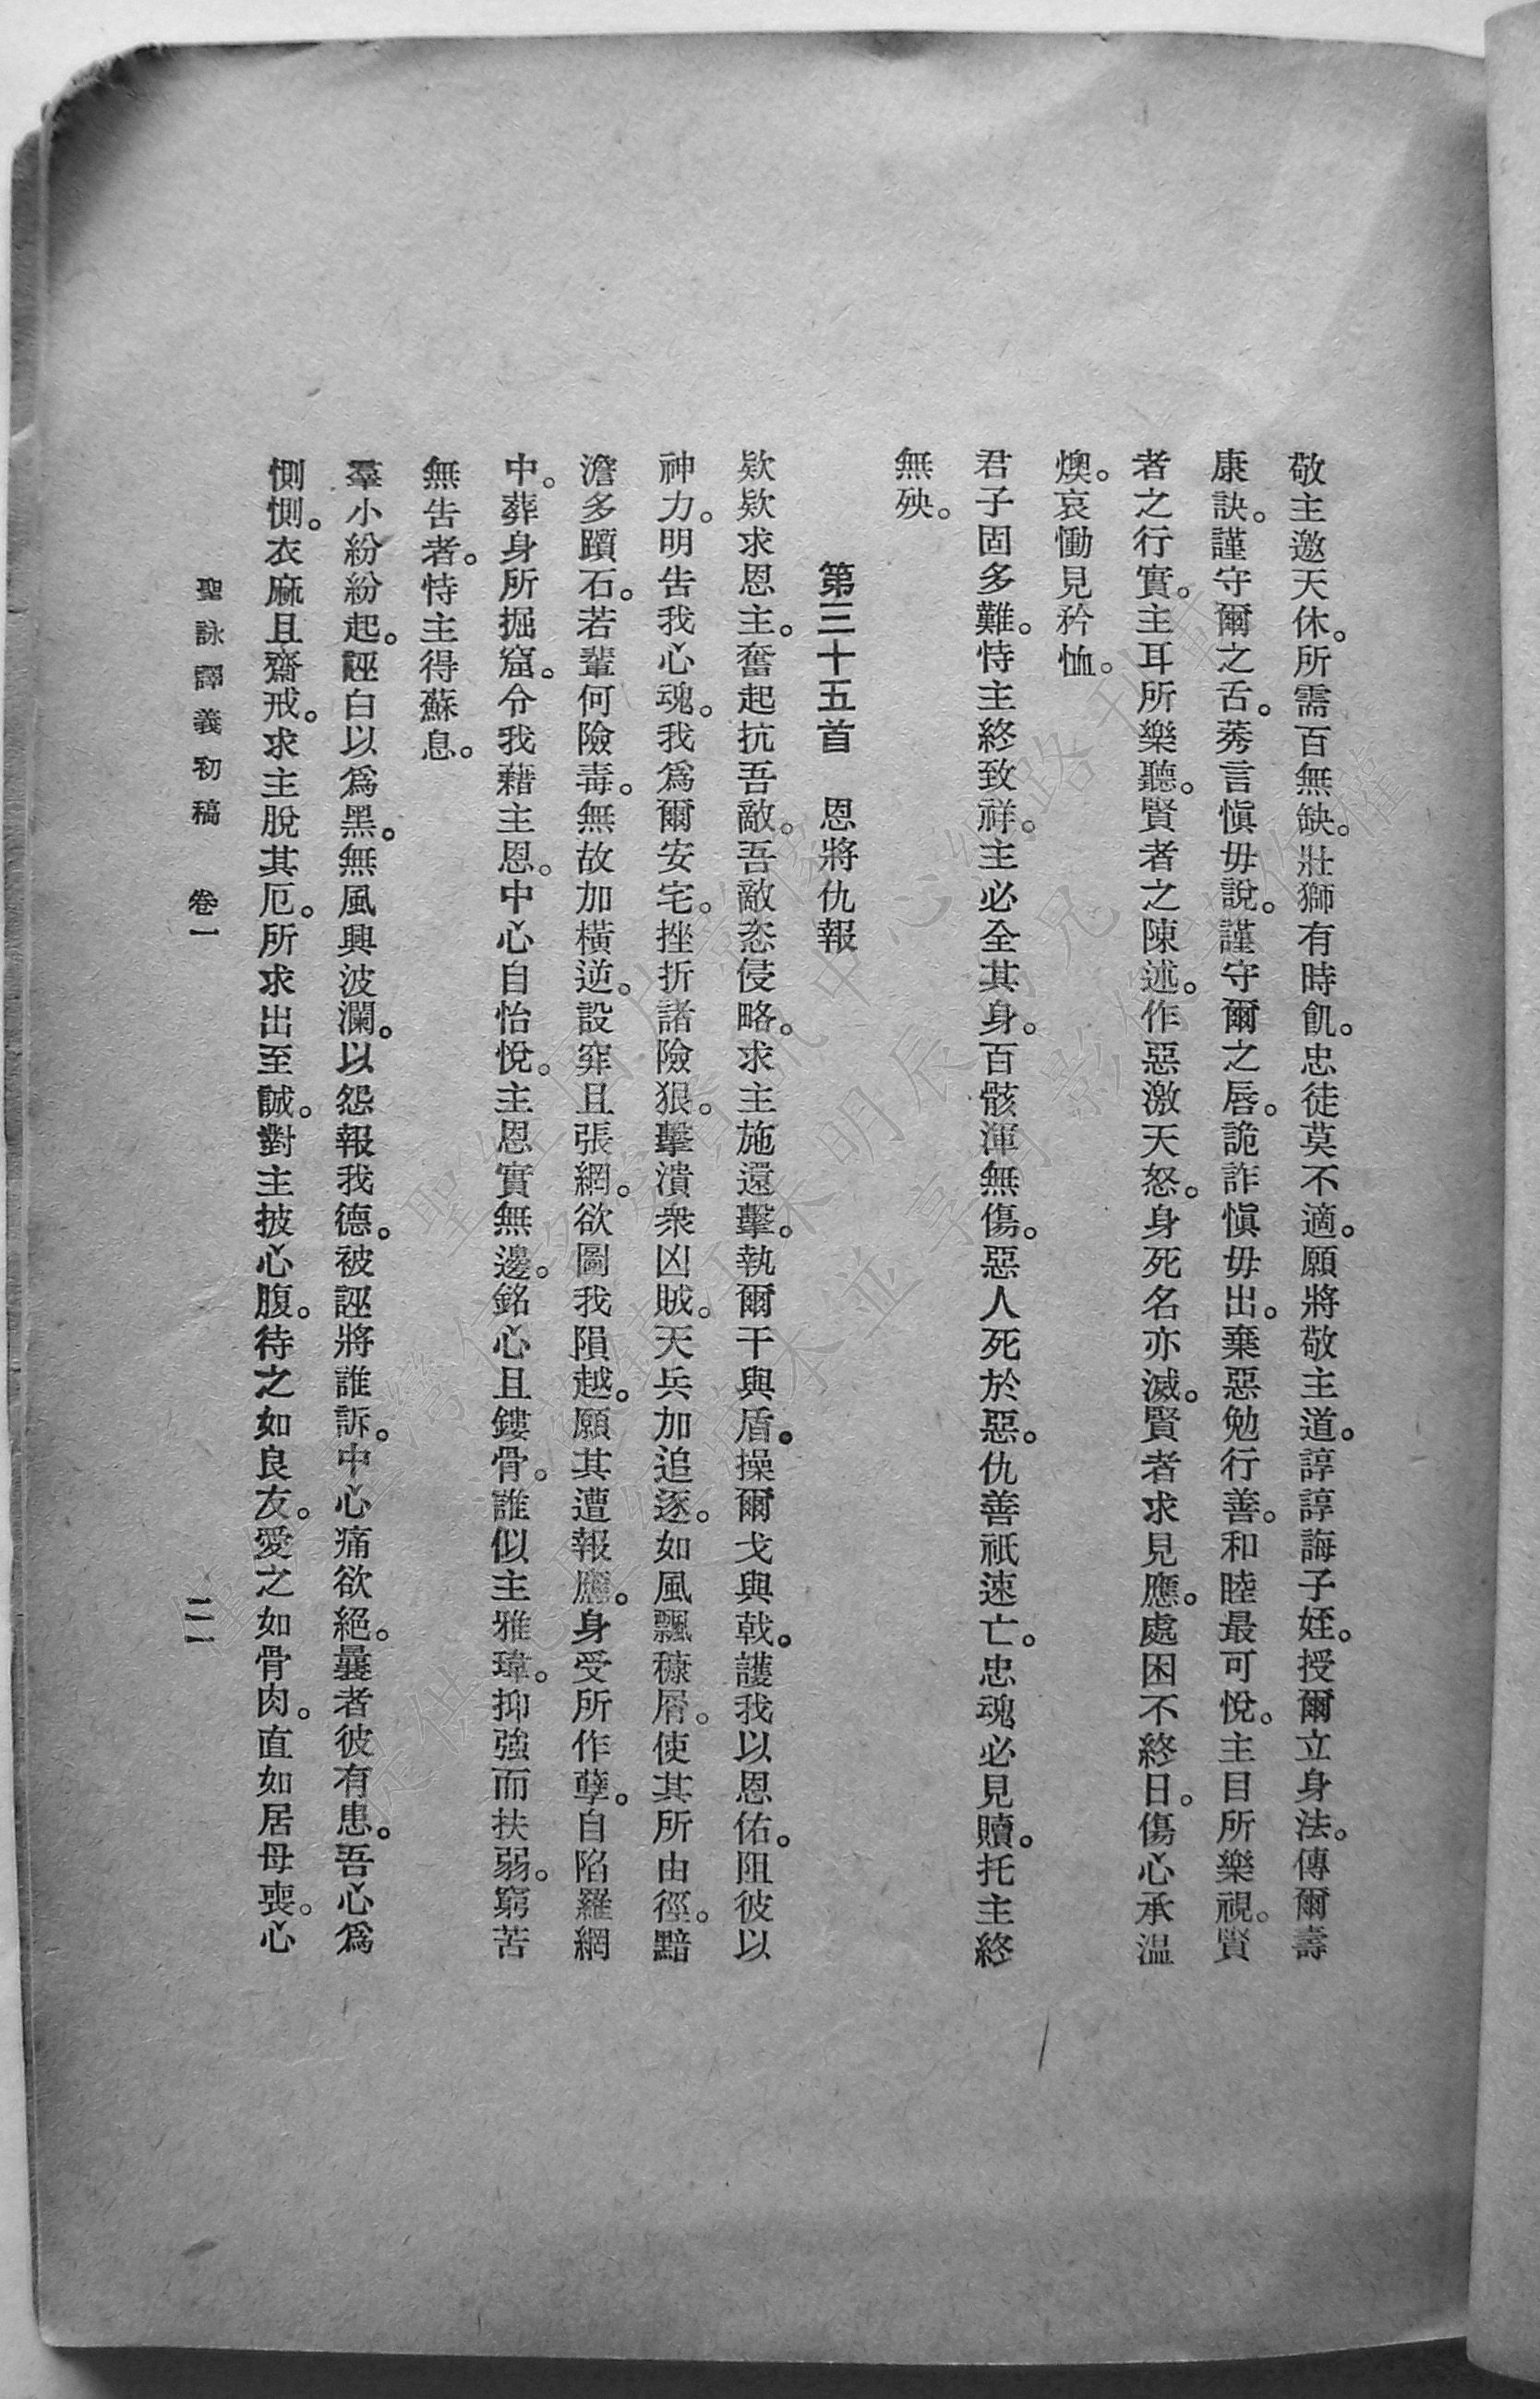 敬主邀天休。所需百無缺。壯獅有時飢。忠徒莫不適。願將敬主道。諄諄誨子姪。授爾立身法。傳爾壽
康訣。謹守爾之舌。莠言愼毋說。謹守爾之唇。詭詐愼毋出。棄惡勉行善。和睦最可悅。主目所樂視。賢
者之行實。主耳所樂聽。賢者之陳述。作惡激天怒。身死名亦滅。賢者求見應。處困不終日。傷心承溫
燠。哀慟見矜恤。
君子固多難。恃主終致祥。主必全其身。百骸渾無傷。惡人死於惡。仇善祇速亡。忠魂必見贖。托主終
無殃。
第三十五首　恩將仇報
欵欵求恩主。奮起抗吾敵。吾敵恣侵略。求主施還擊。執爾干與盾。操爾戈與戟。護我以恩佑。阻彼以
神力。明告我心魂。我爲爾安宅。挫折諸險狠。擊潰衆凶賊。天兵加追逐。如風飄穅屑。使其所由徑。黯
澹多躓石。若輩何險毒。無故加橫逆。設穽且張網。欲圖我隕越。願其遭報應。身受所作孽。自陷羅網
中。葬身所掘窟。令我藉主恩。中心自怡悅。主恩實無邊。銘心且鏤骨。誰似主雅瑋。抑強而扶弱。窮苦
無告者。恃主得蘇息。
羣小紛紛起。誣白以爲黑。無風興波瀾。以怨報我德。被誣將誰訴。中心痛欲絕。曩者彼有患。吾心爲
惻惻。衣麻且齋戒。求主脫其厄。所求出至誠。對主披心腹。待之如良友。愛之如骨肉。直如居母喪。心
聖詠譯義初稿　卷一
二一